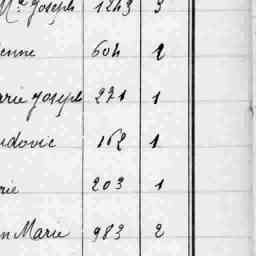 Md Joseph 1243 3
enne 604 1
arie Joseph 271 1
udovic 162 1
rie 203 1
n Marie 983 2